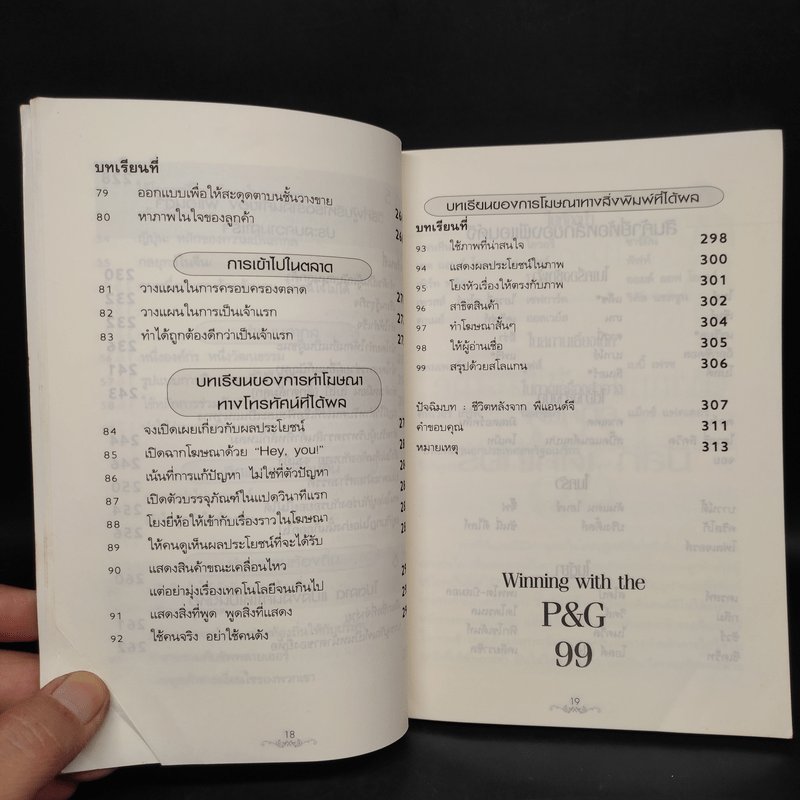 บทเรียนที่
79 ออกแบบเพื่อให้สะดุดตาบนชั้นวางขาย
80 หาภาพในใจของลูกค้า
การเข้าไปในตลาด
81 วางแผนในการครอบครองตลาด
82 วางแผนในการเป็นเจ้าแรก
83 ทำได้ถูกต้องดีกว่าเป็นเจ้าแรก
บทเรียนของการทำโฆษณา
ทางโทรทัศน์ที่ได้ผล
84 จงเปิดเผยเกี่ยวกับผลประโยชน์
85 เปิดฉากโฆษณาด้วย “Hey, you!”
86 เน้นที่การแก้ปัญหา ไม่ใช่ที่ตัวปัญหา
87 เปิดตัวบรรจุภัณฑ์ในแปดวินาทีแรก
88 โยงยี่ห้อให้เข้ากับเรื่องราวในโฆษณา
89 ให้คนดูเห็นผลประโยชน์ที่จะได้รับ
90 แสดงสินค้าขณะเคลื่อนไหว
แต่อย่ามุ่งเรื่องเทคโนโลยีจนเกินไป
91 แสดงสิ่งที่พูด พูดสิ่งที่แสดง
92 ใช้คนจริง อย่าใช้คนดัง
18
บทเรียนของการโฆษณาทางสิ่งพิมพ์ที่ได้ผล
บทเรียนที่
93 ใช้ภาพที่น่าสนใจ 298
94 แสดงผลประโยชน์ในภาพ 300
95 โยงหัวเรื่องให้ตรงกับภาพ 301
96 สาธิตสินค้า 302
97 ทำโฆษณาสั้นๆ 304
98 ให้ผู้อ่านเชื่อ 305
99 สรุปด้วยสโลแกน 306
ปัจฉิมบท : ชีวิตหลังจาก พีแอนด์จี 307
คำขอบคุณ 311
หมายเหตุ 313
Winning with the
P&G
99
19